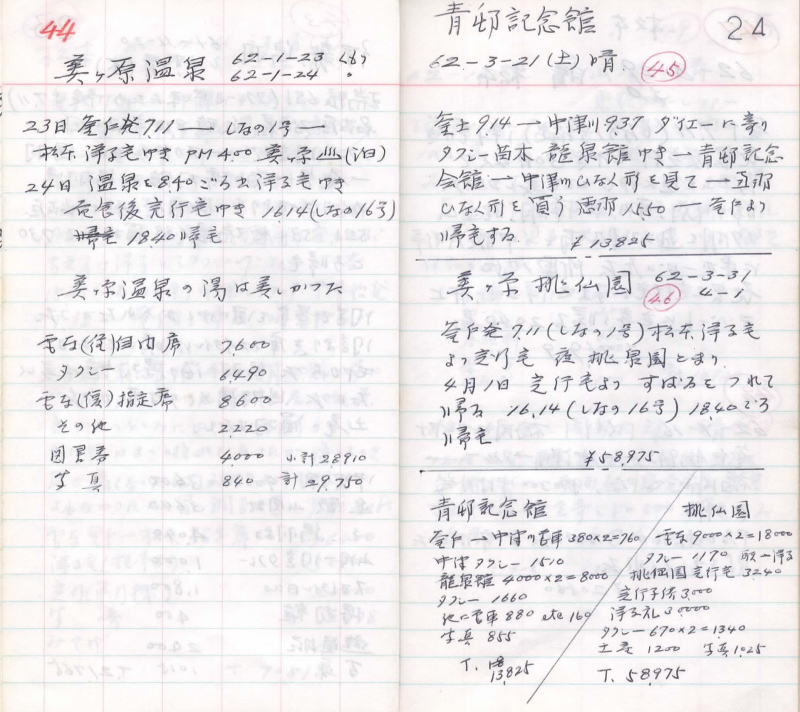 44
美ヶ原温泉 62-1-23 くもり
62-1-24 〃
23日 釜戸発 7.11 — しなの1号 —
松本 澤る宅ゆき PM 4.00 美ヶ原 (泊)
24日 温泉を 8.40ごろ出 澤る宅ゆき
昼食後 定行宅ゆき 16.14 (しなの16号)
18.40 帰宅
美ヶ原温泉の湯は美しかった
電車(往)自由席 7,600
タクシー 6,490
電車(復)指定席 8,600
その他 2,220
4,000 小計 28,910
写真 840 計 29,750
24
青邨記念館
62-3-21 (土) 晴 45
釜戸 9.14 → 中津川 9.37 ダイエーに寄り
タクシー 苗木 龍泉館ゆき → 青邨記念
会館 → 中津川ひな人形を見て → 
ひな人形を買う 恵那 15.50 — 釜戸より
帰宅する ¥13,825
美ヶ原 桃仙園 62-3-31
46 4-1
釜戸発 7.11 (しなの1号) 松本 澤る宅
より定行宅 夜 桃泉園とまり
4月1日 定行宅より すばるをつれて
帰る 16.14 (しなの16号) 18.40ごろ
帰宅
¥58,975
青邨記念館
釜戸 → 中津の電車 380×2=760
中津 タクシー 1510
龍泉館 4000×2=8000
タクシー 1660
他に電車 880 etc 160
写真 855
T. 13,825
桃仙園
電車 9000×2=18000
タクシー 1170
桃仙園 定行宅 3240
定行子供 3,000
澤る礼 30000
タクシー 670×2=1340
土産 1200 写真 1025
T. 58975